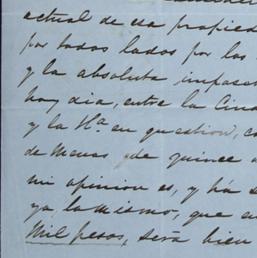 actual de esa propied
por todos lados por las
y la absoluta impos
hoy dia, entre la Ciud
y la Hª en question, co
de menos de quince a
mi opinion es, y há s
ya lo mismo, que en
Mil pesos, será bien